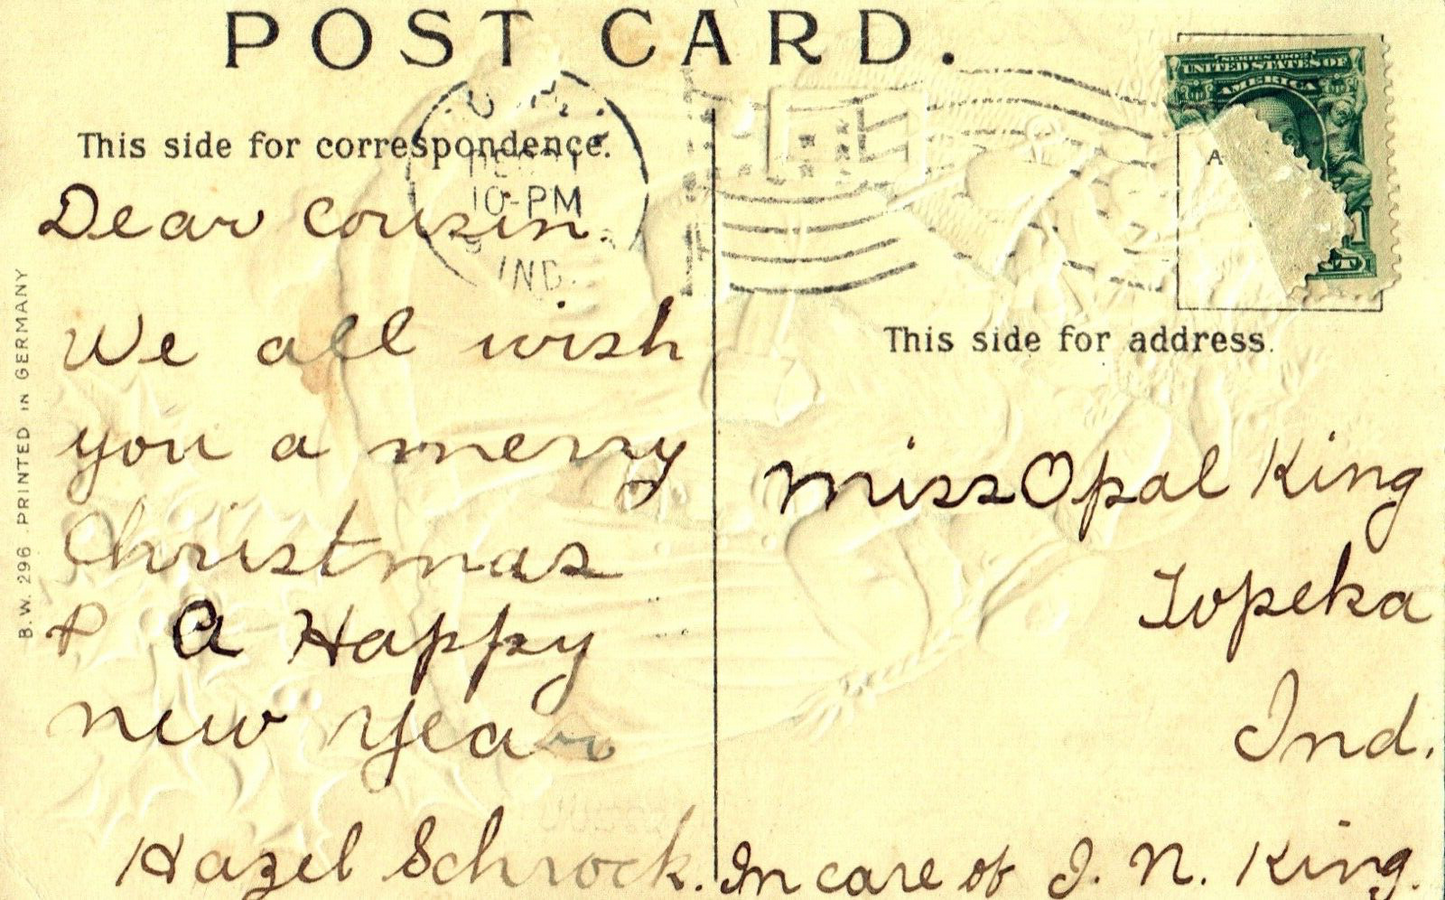 POST CARD.
This side for correspondence.
10-PM
IND.
Dear Cousin.
We all wish
you a merry
Christmas
& a Happy
new year
Hazel Schrock.
B.W. 296. PRINTED IN GERMANY
SERIES 1902
UNITED STATES OF
AMERICA
This side for address.
Miss Opal King
Topeka
Ind.
In care of J. N. King.